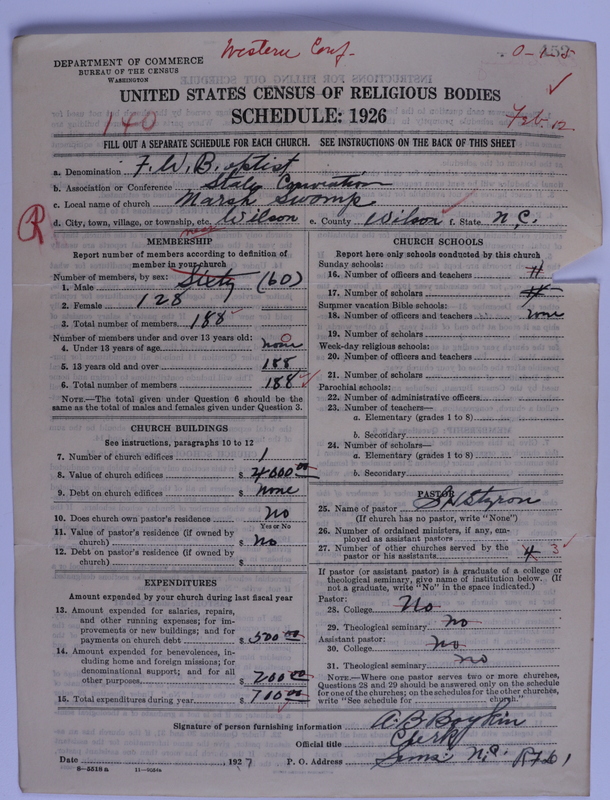 Western Conf.
DEPARTMENT OF COMMERCE
BUREAU OF THE CENSUS
WASHINGTON
UNITED STATES CENSUS OF RELIGIOUS BODIES
SCHEDULE: 1926
140
Feb. 12
FILL OUT A SEPARATE SCHEDULE FOR EACH CHURCH. SEE INSTRUCTIONS ON THE BACK OF THIS SHEET
a. Denomination F. W. Baptist
b. Association or Conference State Convention
c. Local name of church Marsh Swomp
d. City, town, village, or township, etc. near Wilson e. County Wilson f. State N.C.
MEMBERSHIP
Report number of members according to definition of
member in your church
Number of members, by sex:
1. Male Sixty (60)
2. Female 128
3. Total number of members 188
Number of members under and over 13 years old:
4. Under 13 years of age none 0
5. 13 years old and over 188
6. Total number of members 188
NOTE.—The total given under Question 6 should be
same as the total of males and females given under Question 3.
CHURCH BUILDINGS
See instructions, paragraphs 10 to 12
7. Number of church edifices 1
8. Value of church edifices $ 4000 00
9. Debt on church edifices $ none
10. Does church own pastor's residence No
Yes or No
11. Value of pastor's residence (if owned by
church) $ No
12. Debt on pastor's residence (if owned by
church) $
EXPENDITURES
Amount expended by your church during last fiscal year
13. Amount expended for salaries, repairs,
and other running expenses; for im-
provements or new buildings; and for
payments on church debt $ 500 00
14. Amount expended for benevolences, in-
cluding home and foreign missions; for
denominational support; and for all
other purposes $ 200 00
15. Total expenditures during year $ 700 00
CHURCH SCHOOLS
Report here only schools conducted by this church
Sunday schools:
16. Number of officers and teachers
17. Number of scholars
Summer vacation Bible schools:
18. Number of officers and teachers none
19. Number of scholars
Week-day religious schools:
20. Number of officers and teachers
21. Number of scholars
Parochial schools:
22. Number of administrative officers
23. Number of teachers—
a. Elementary (grades 1 to 8)
b. Secondary
24. Number of scholars—
a. Elementary (grades 1 to 8)
b. Secondary
PASTOR
25. Name of pastor Styron
(If church has no pastor, write "None")
26. Number of ordained ministers, if any, em-
ployed as assistant pastors
27. Number of other churches served by the
pastor or his assistants 4 3
If pastor (or assistant pastor) is a graduate of a college or
theological seminary, give name of institution below. (If
not a graduate, write "No" in the space indicated.)
Pastor:
28. College No
29. Theological seminary no
Assistant pastor:
30. College no
31. Theological seminary no
NOTE.—Where one pastor serves two or more churches,
Questions 28 and 29 should be answered only on the schedule
for one of the churches; on the schedules for the other churches,
write "See schedule for church."
Signature of person furnishing information A. B. Boykin
Official title Clerk
Date , 1927 P. O. Address Sims N.C.
8—5518a 11—9054a